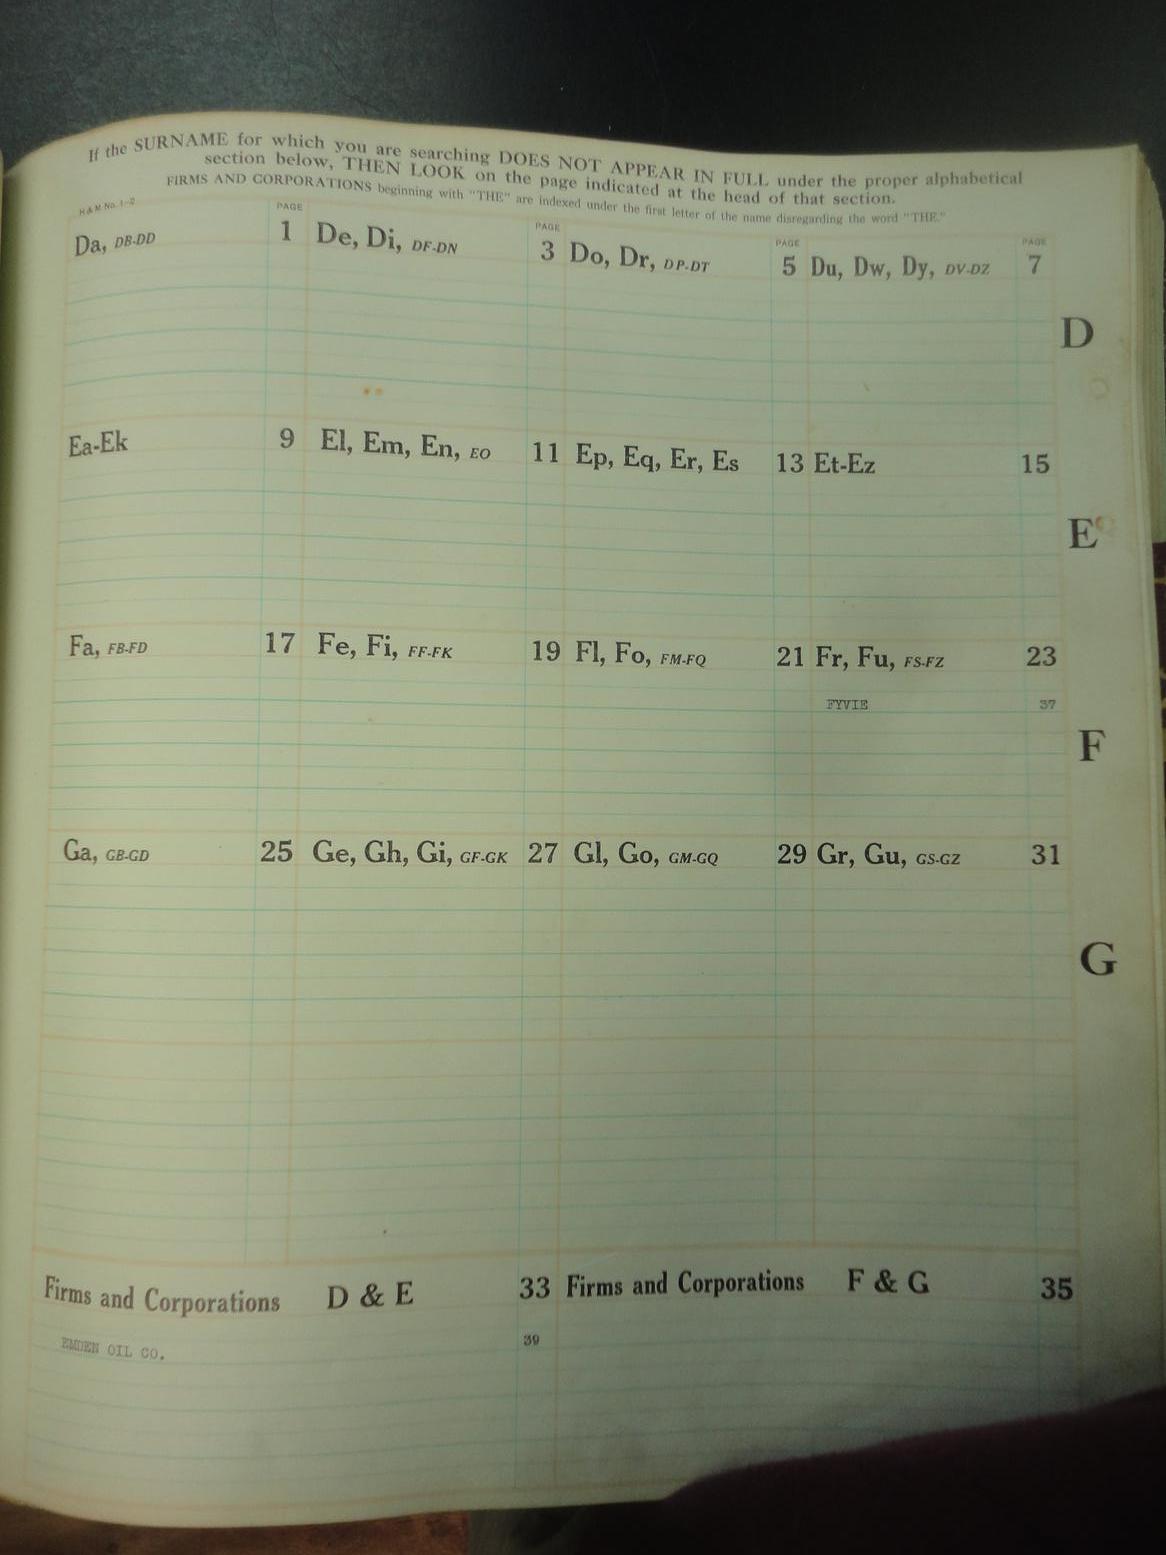 If the SURNAME for which you are searching DOES NOT APPEAR IN FULL under the proper alphabetical
section below, THEN LOOK on the page indicated at the head of that section.
FIRMS AND CORPORATIONS beginning with "THE" are indexed under the first letter of the name disregarding the word "THE."
H & M No. 1-2
PAGE PAGE PAGE PAGE
Da, DB-DD 1 De, Di, DF-DN 3 Do, Dr, DP-DT 5 Du, Dw, Dy, DV-DZ 7
D
Ea-Ek 9 El, Em, En, EO 11 Ep, Eq, Er, Es 13 Et-Ez 15
E
Fa, FB-FD 17 Fe, Fi, FF-FK 19 Fl, Fo, FM-FQ 21 Fr, Fu, FS-FZ 23
FYVIE 37
F
Ga, GB-GD 25 Ge, Gh, Gi, GF-GK 27 Gl, Go, GM-GQ 29 Gr, Gu, GS-GZ 31
G
Firms and Corporations D & E 33 Firms and Corporations F & G 35
EMDEN OIL CO. 39